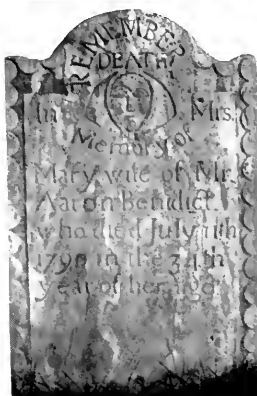 REMEMBER
DEATH
In Mrs.
Memory of
Mary wife of Mr.
Aaron Benidict
who died July 11th
in the
year of her age